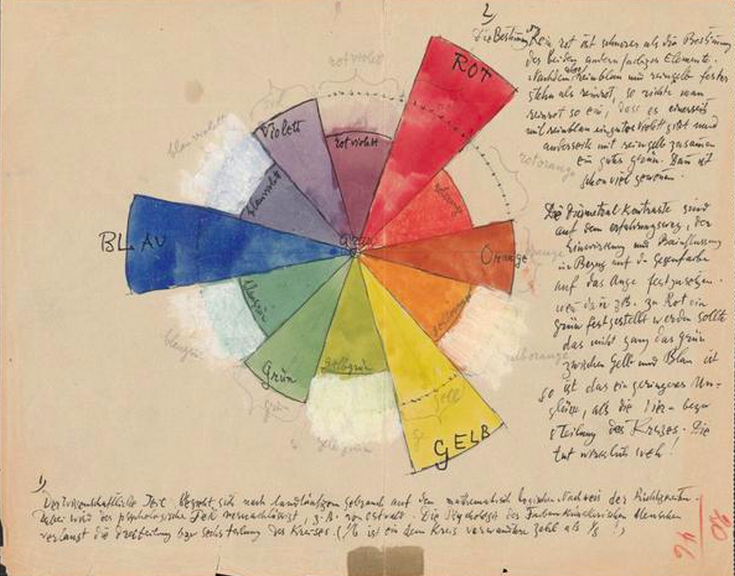 2)
Die Bestimmg Rein rot ist schwerer als die Bestimmung
der beiden andern farbigen Elemente.
Nachdem aber reinblau und reingelb fester
stehn als reinrot, so richte man
reinrot so ein, dass es einerseits
mit reinblau ein gutes Violett gibt und
anderseits mit reingelb zusammen
ein gutes Dann ist
schon viel gewonnen.
Die Diametral Kontraste sind
auf dem erfahrungsweg, der
Einwirkung und Beeinflussung
in Bezug auf d. Gegenfarbe
auf das Auge festzusetzen.
wenn dann zB. zu Rot ein
grün festgestellt werden sollte
das nicht ganz das Grün
zwischen Gelb und Blau ist
so ist das ein geringeres Un-
glück, als die
teilung des Kreises. Die
tut wirklich weh!
rotviolett
ROT
Violett
rotviolett
blauviolett
blauviolett
rotorange
rotorange
BLAU
Grau
Orange
orange
blaugrün
gelborange
gelborange
blaugrün
Grün
gelbgrün
gelb
grün
GELB
gelbgrün
1)
Der wissenschaftliche Teil begeht sich nach landläufigem gebrauch auf den mathematisch logischen Nachweis der
Dabei wird der psychologische Teil vernachlässigt, z.B. von Ostwald. Die Psychologie des Farbenkünstlerischen Menschen
verlangt die dreiteilung bzw sechsteilung des Kreises. (1/6 ist ein dem Kreis verwandtere Zahl als 1/8 !)